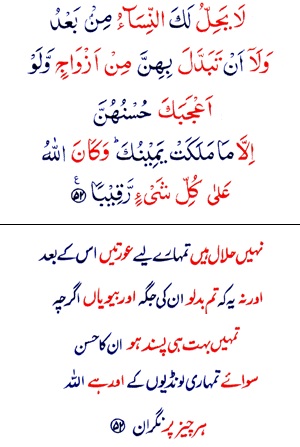 لَا يَحِلُّ لَكَ النِّسَآءُ مِنْۢ بَعْدُ
وَلَآ اَنْ تَبَدَّلَ بِهِنَّ مِنْ اَزْوَاجٍ وَّلَوْ
اَعْجَبَكَ حُسْنُهُنَّ
اِلَّا مَا مَلَكَتْ يَمِيْنُكَ ؕ وَكَانَ اللّٰهُ
عَلٰى كُلِّ شَىْءٍ رَّقِيْبًا ﴿۵۲﴾ ع
نہیں حلال ہیں تمہارے لیے عورتیں اس کے بعد
اور نہ یہ کہ تم بدلو ان کی جگہ اور بیویاں اگرچہ
تمہیں بہت ہی پسند ہو ان کا حسن
سوائے تمہاری لونڈیوں کے اور ہے اللہ
ہر چیز پر نگران ﴿۵۲﴾